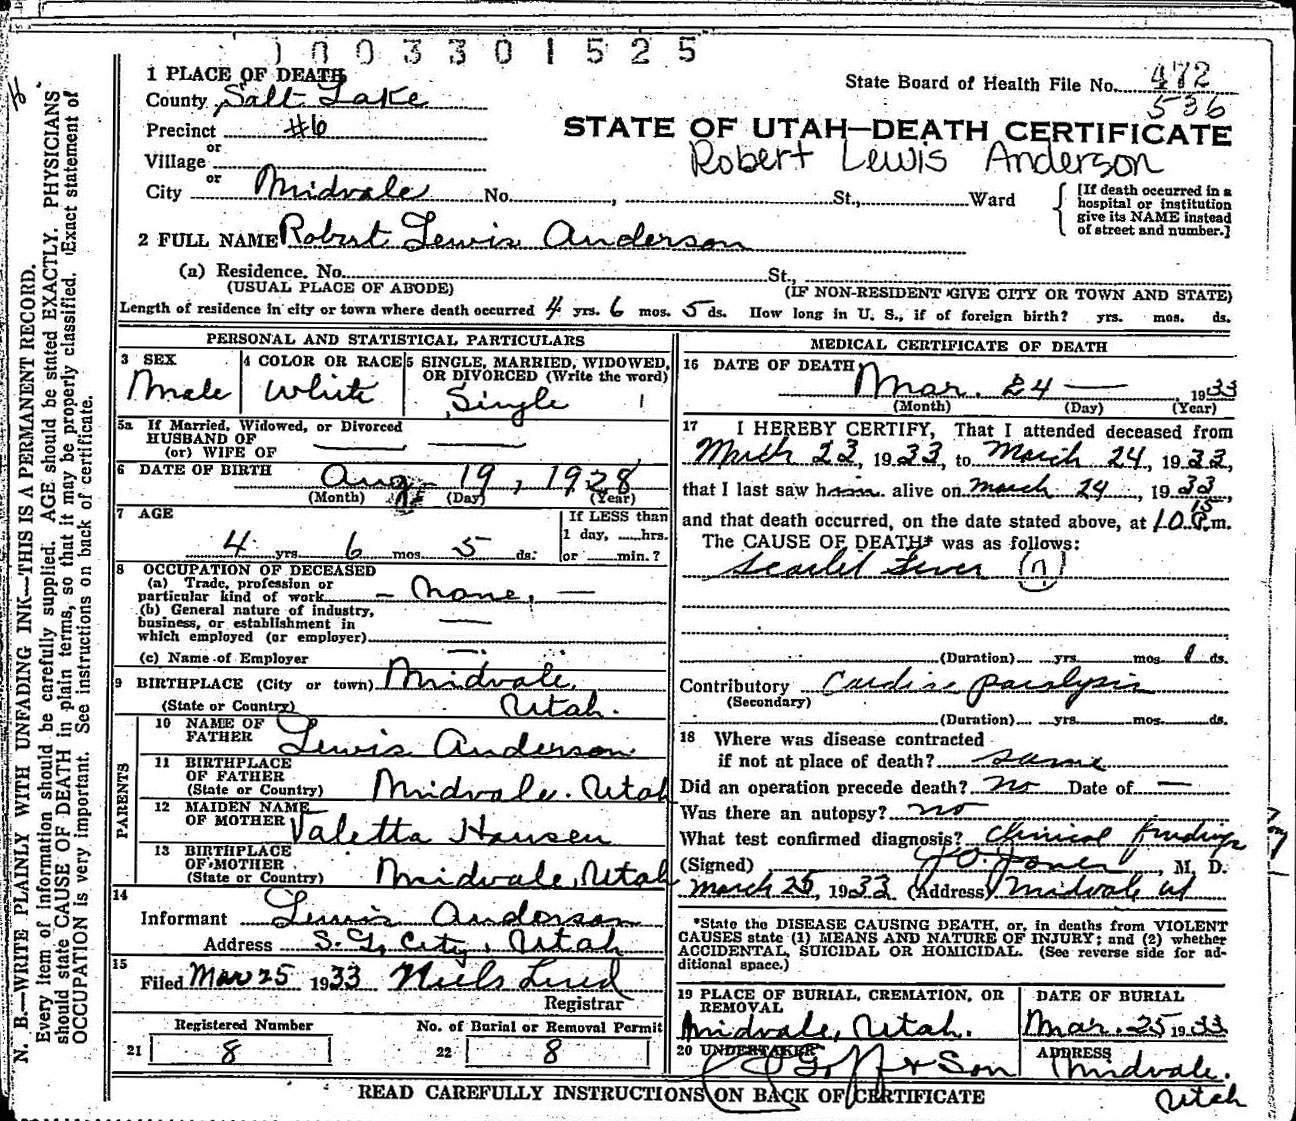 1003301525
1 PLACE OF DEATH
County Salt Lake
State Board of Health File No. 472
536
Precinct #6
STATE OF UTAH—DEATH CERTIFICATE
or
Village
Robert Lewis Anderson
or
City Midvale No. , St., Ward
[If death occurred in a
hospital or institution
give its NAME instead
of street and number.]
2 FULL NAME Robert Lewis Anderson
(a) Residence. No. St.,
(USUAL PLACE OF ABODE) (IF NON-RESIDENT GIVE CITY OR TOWN AND STATE)
Length of residence in city or town where death occurred 4 yrs. 6 mos. 5 ds. How long in U. S., if of foreign birth? yrs. mos. ds.
PERSONAL AND STATISTICAL PARTICULARS
3 SEX
Male
4 COLOR OR RACE
White
5 SINGLE, MARRIED, WIDOWED,
OR DIVORCED (Write the word)
Single
5a If Married, Widowed, or Divorced
HUSBAND OF
(or) WIFE OF
6 DATE OF BIRTH Aug. 19, 1928
(Month) (Day) (Year)
7 AGE
4 yrs 6 mos. 5 ds.
If LESS than
1 day, ....hrs.
or ......min.?
8 OCCUPATION OF DECEASED
(a) Trade, profession or
particular kind of work — None. —
(b) General nature of industry,
business, or establishment in
which employed (or employer)
(c) Name of Employer
9 BIRTHPLACE (City or town) Midvale,
(State or Country) Utah.
PARENTS
10 NAME OF
FATHER Lewis Anderson
11 BIRTHPLACE
OF FATHER
(State or Country) Midvale. Utah
12 MAIDEN NAME
OF MOTHER Valetta Hansen
13 BIRTHPLACE
OF MOTHER
(State or Country) Midvale, Utah
14
Informant Lewis Anderson
Address S. L. City, Utah
15
Filed Mar 25 1933 Niels Lind
Registrar
Registered Number
21 8
No. of Burial or Removal Permit
22 8
MEDICAL CERTIFICATE OF DEATH
16 DATE OF DEATH Mar. 24 — 1933
(Month) (Day) (Year)
17 I HEREBY CERTIFY, That I attended deceased from
March 23, 1933, to March 24, 1933,
that I last saw him alive on March 24, 1933,
and that death occurred, on the date stated above, at 10 15 P.m.
The CAUSE OF DEATH* was as follows:
Scarlet Fever
(Duration) yrs. mos. 1 ds.
Contributory Cardiac paralysis
(Secondary)
(Duration) yrs. mos. ds.
18 Where was disease contracted
if not at place of death? same
Did an operation precede death? no Date of —
Was there an autopsy? no
What test confirmed diagnosis? Clinical findings
(Signed) J. O. Jones, M. D.
March 25, 1933 (Address) Midvale Ut
*State the DISEASE CAUSING DEATH, or, in deaths from VIOLENT
CAUSES state (1) MEANS AND NATURE OF INJURY; and (2) whether
ACCIDENTAL, SUICIDAL OR HOMICIDAL. (See reverse side for ad-
ditional space.)
19 PLACE OF BURIAL, CREMATION, OR
REMOVAL
Midvale, Utah.
DATE OF BURIAL
Mar. 25 1933
20 UNDERTAKER
Goff & Son
ADDRESS
Midvale.
Utah
READ CAREFULLY INSTRUCTIONS ON BACK OF CERTIFICATE
N. B.—WRITE PLAINLY WITH UNFADING INK—THIS IS A PERMANENT RECORD.
Every item of information should be carefully supplied. AGE should be stated EXACTLY. PHYSICIANS
should state CAUSE OF DEATH in plain terms, so that it may be properly classified. Exact statement of
OCCUPATION is very important. See instructions on back of certificate.